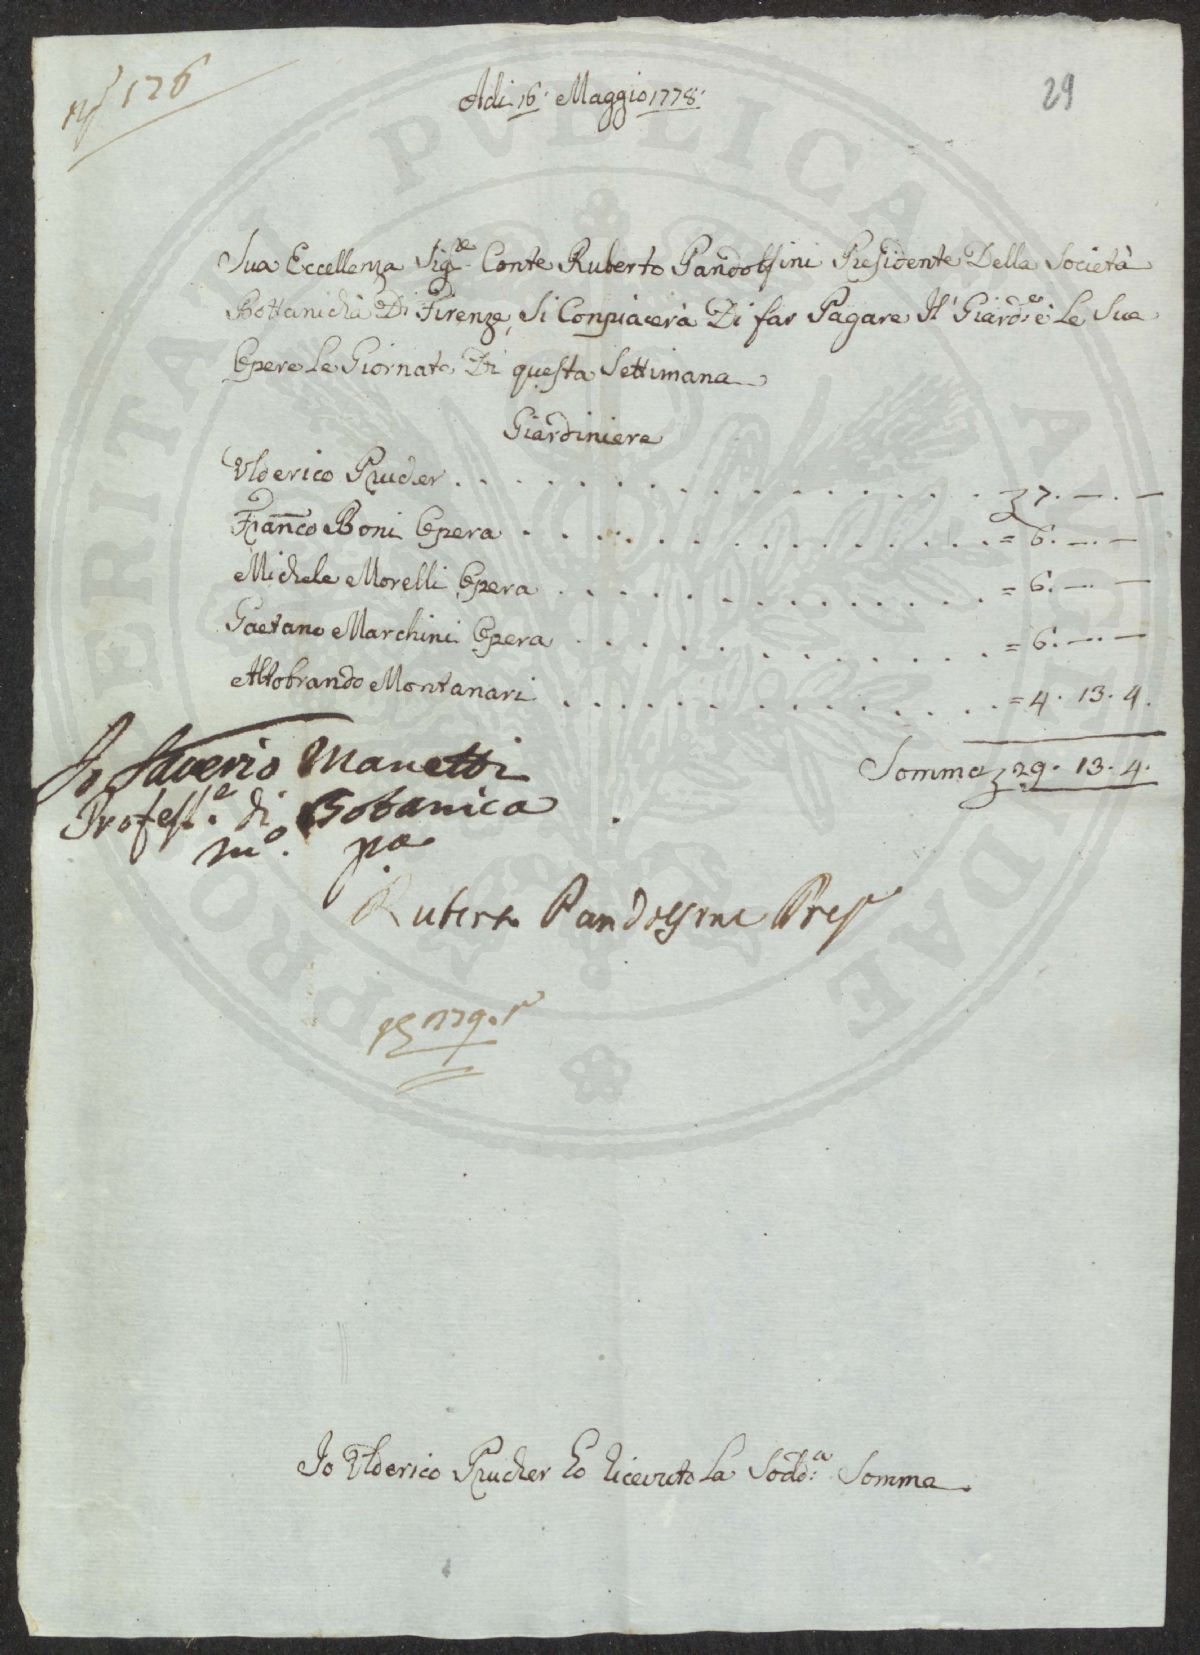 126
29
Adi 16. Maggio 1778.
Sua Eccellenza Sig.re Conte Ruberto Pandolfini Presidente Della Società
Bottanicha Di Firenze, Si Conpiacerà Di far Pagare Il Giard.e e Le Sue
Opere Le Giornate Di questa Settimana
Giardiniere
Ulderico Prucher . . . . . . . . . . . . . . . 7. — . —
Franco Boni Opera . . . . . . . . . . . . . = 6. — . —
Michele Morelli Opera . . . . . . . . . . . . = 6. — . —
Gaetano Marchini Opera . . . . . . . . . . . = 6. — . —
Altobrando Montanari . . . . . . . . . . . . = 4. 13. 4.
Somma 29. 13. 4.
Io Saverio Manetti
Profess.e di Botanica
mo. pa
Ruberto Pandolfini Pres
Io Ulderico Prucher Ho Riceuto La Sodd.a Somma.
PRO PERITATI PVBLICAE AVGENDAE